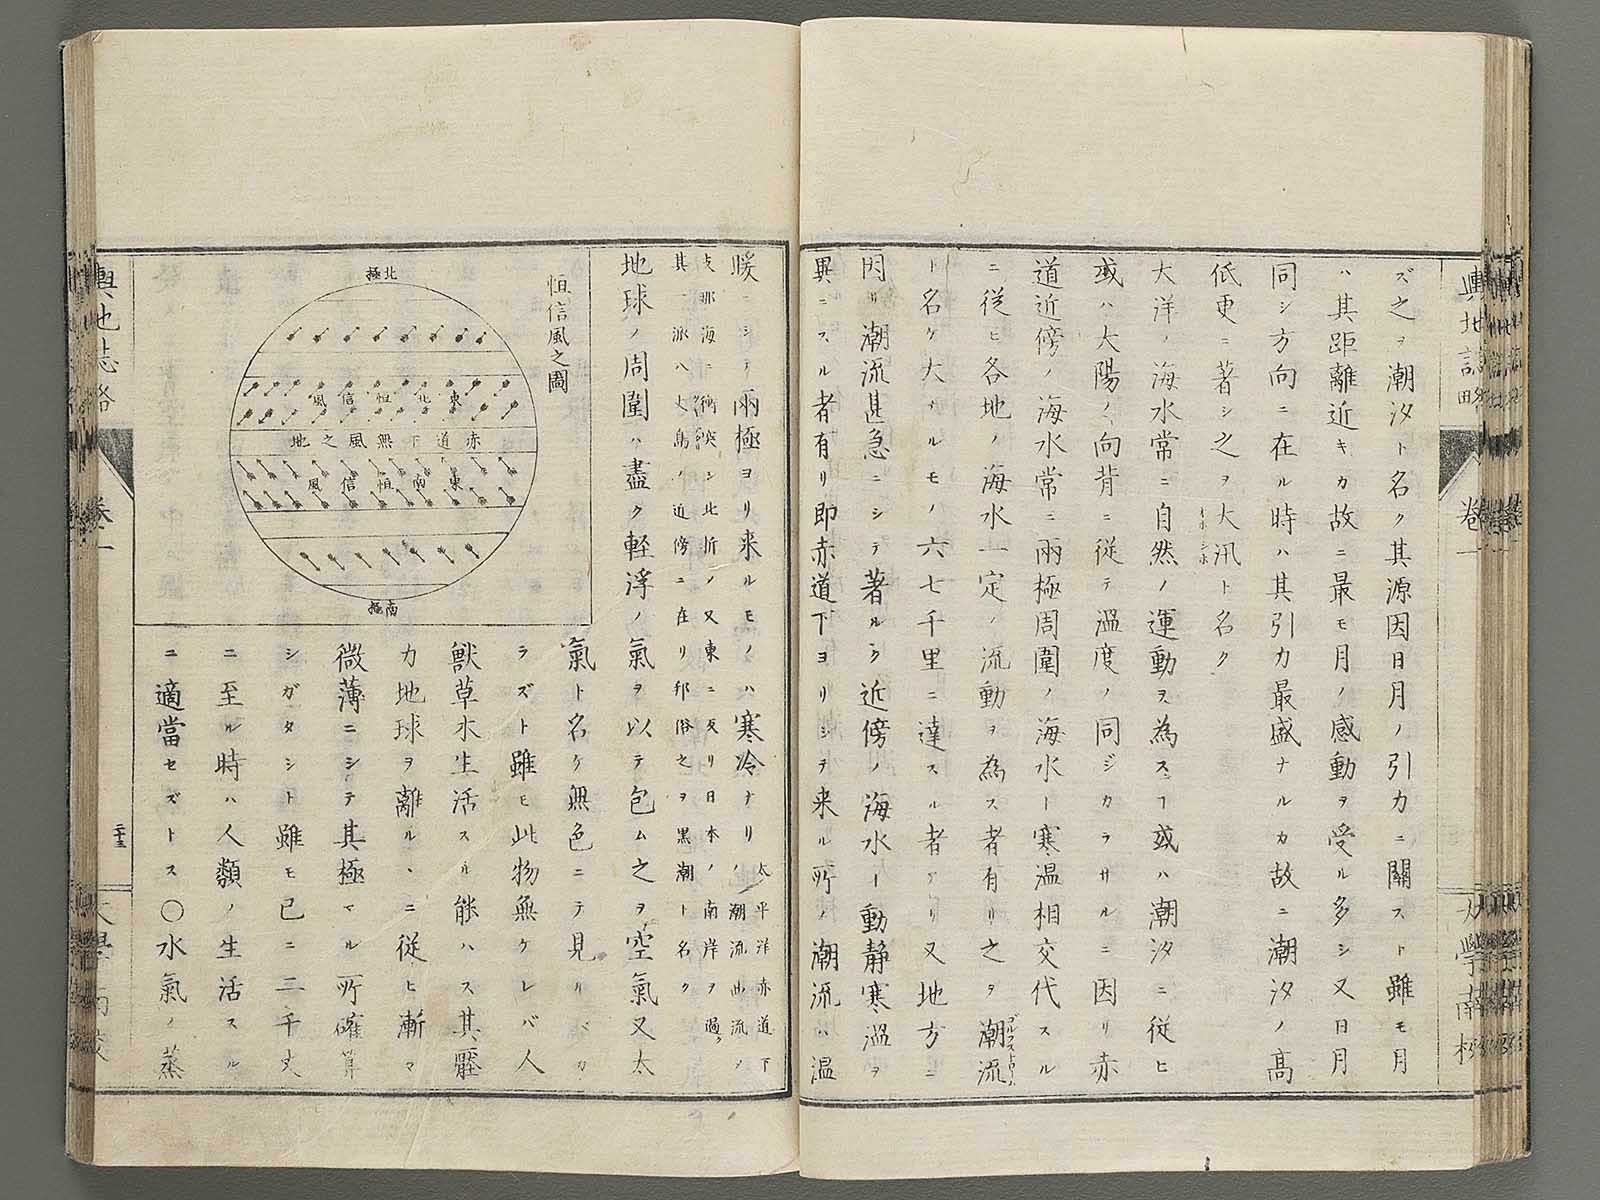 輿地誌略 卷一 大學南校
ズ之ヲ潮汐ト名ク其源因日月ノ引力ニ關スト雖モ月
ハ其距離近キカ故ニ最モ月ノ感動ヲ受ル多シ又日月
同シ方向ニ在ル時ハ其引力最盛ナルカ故ニ潮汐ノ高
低更ニ著シ之ヲ大汛ト名ク
大洋ノ海水常ニ自然ノ運動ヲ為スヿ或ハ潮汐ニ従ヒ
或ハ大陽ノ向背ニ従テ温度ノ同ジカラサルニ因リ赤
道近傍ノ海水常ニ兩極周圍ノ海水ト寒温相交代スル
ニ従ヒ各地ノ海水一定ノ流動ヲ為ス者有リ之ヲ潮流
ト名ケ大ナルモノ六七千里ニ達スル者アリ又地方ニ
因リ潮流甚急ニシテ著ルク近傍ノ海水ト動静寒温ヲ
異ニスル者有リ即赤道下ヨリシテ来ル所ノ潮流ハ温
暖ニシテ兩極ヨリ来ルモノハ寒冷ナリ
太平洋赤道下ノ潮流北流シ
支那海ニ衝突シ北折ノ又東ニ反リ日本ノ南岸ヲ過ク
其一派八丈島ノ近傍ニ在リ邦俗之ヲ黒潮ト名ク
地球ノ周圍ハ盡ク軽浮ノ氣ヲ以テ包ム之ヲ空氣又太
恒信風之圖
北極
東北恒信風
赤道下無風之地
東南恒信風
南極
氣ト名ケ無色ニテ見ルベカ
ラズト雖モ此物無ケレバ人
獣草木生活スル能ハス其壓
力地球ヲ離ルヽニ従ヒ漸ク
微薄ニシテ其極マル所確算
シガタシト雖モ已ニ二千丈
ニ至ル時ハ人類ノ生活スル
ニ適當セズトス〇水氣ノ蒸
輿地誌略 卷一 二十三 大學南校